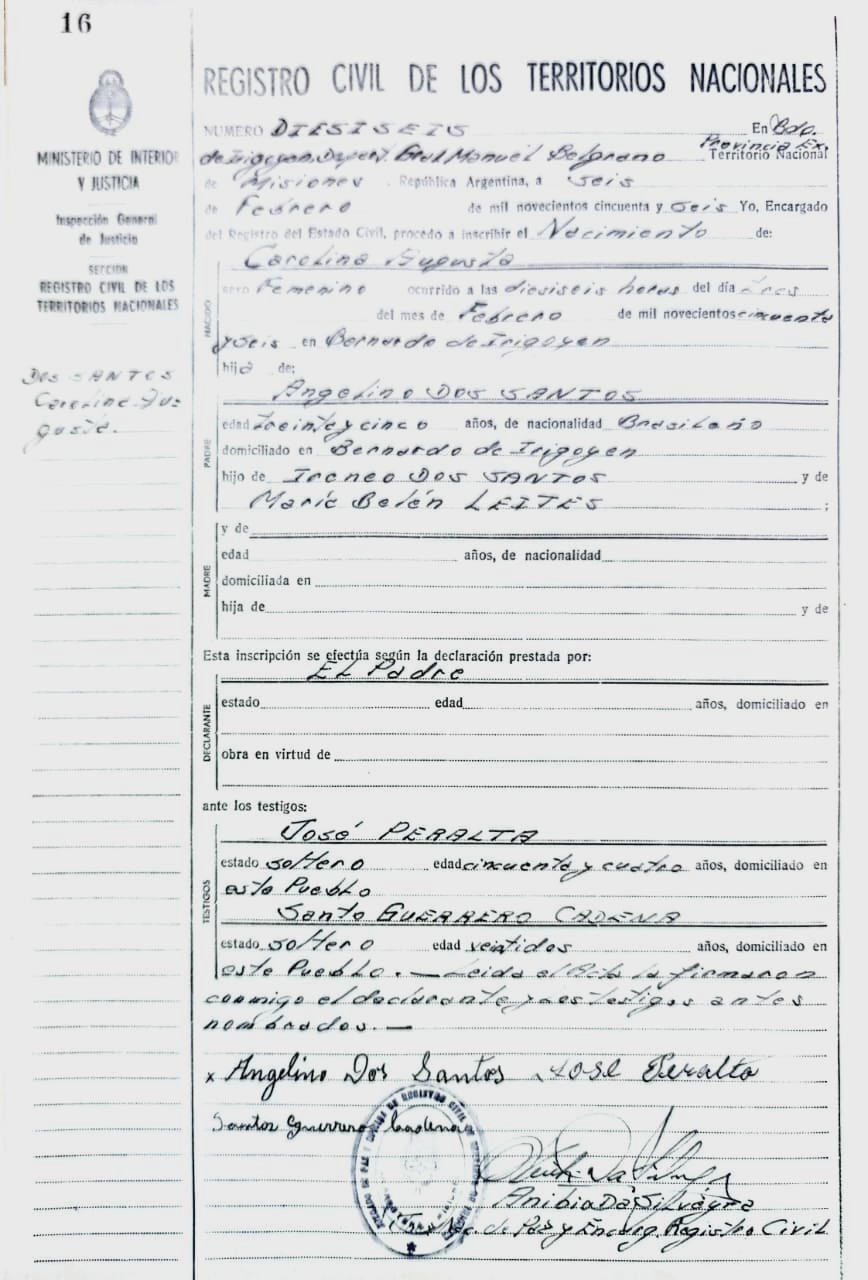 16
REGISTRO CIVIL DE LOS TERRITORIOS NACIONALES
MINISTERIO DE INTERIOR
Y JUSTICIA
Inspección General
de Justicia
SECCION
REGISTRO CIVIL DE LOS
TERRITORIOS NACIONALES
DOS SANTOS
Carolina Au-
gusta.
NUMERO DIESISEIS En Bdo.
de Irigoyen, Depart. Gral Manuel Belgrano Provincia Ex. Territorio Nacional
de Misiones. República Argentina, a seis
de Febrero de mil novecientos cincuenta y seis Yo, Encargado
del Registro del Estado Civil, procedo a inscribir el Nacimiento de:
NACIDO
Carolina Augusta
sexo Femenino ocurrido a las diesiseis horas del día tres
del mes de Febrero de mil novecientos cincuenta
y seis en Bernardo de Irigoyen
hija de:
PADRE
Angelino DOS SANTOS
edad treinta y cinco años, de nacionalidad Brasileño
domiciliado en Bernardo de Irigoyen
hijo de Ireneo DOS SANTOS y de
María Belén LEITES ;
MADRE
y de
edad años, de nacionalidad
domiciliada en
hija de y de
Esta inscripción se efectúa según la declaración prestada por:
DECLARANTE
El Padre
estado edad años, domiciliado en
obra en virtud de
ante los testigos:
TESTIGOS
José PERALTA
estado soltero edad cincuenta y cuatro años, domiciliado en
este Pueblo
Santo GUERRERO CADENA
estado soltero edad veintidos años, domiciliado en
este Pueblo. — Leida el Acta la firmaron
conmigo el declarante y los testigos antes
nombrados. —
x Angelino Dos Santos José Peralta
Santos Guerrero Cadena
Anibio Da Silveyra
de Paz y Encarg. Registro Civil